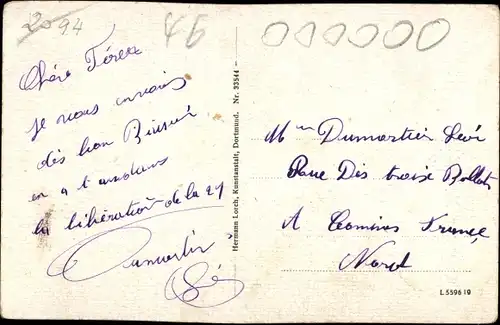 2094
46
000000
Chére Férez
Je vous envois
dès bon Baisié
en attandans
la libération de la 29
Dumortier
Hermann Lorch, Kunstanstalt, Dortmund. Nr. 33544 —
Mme Dumortier Leói
Rue Dis troise Ballots
A Comines France
Nord
L 5596 19